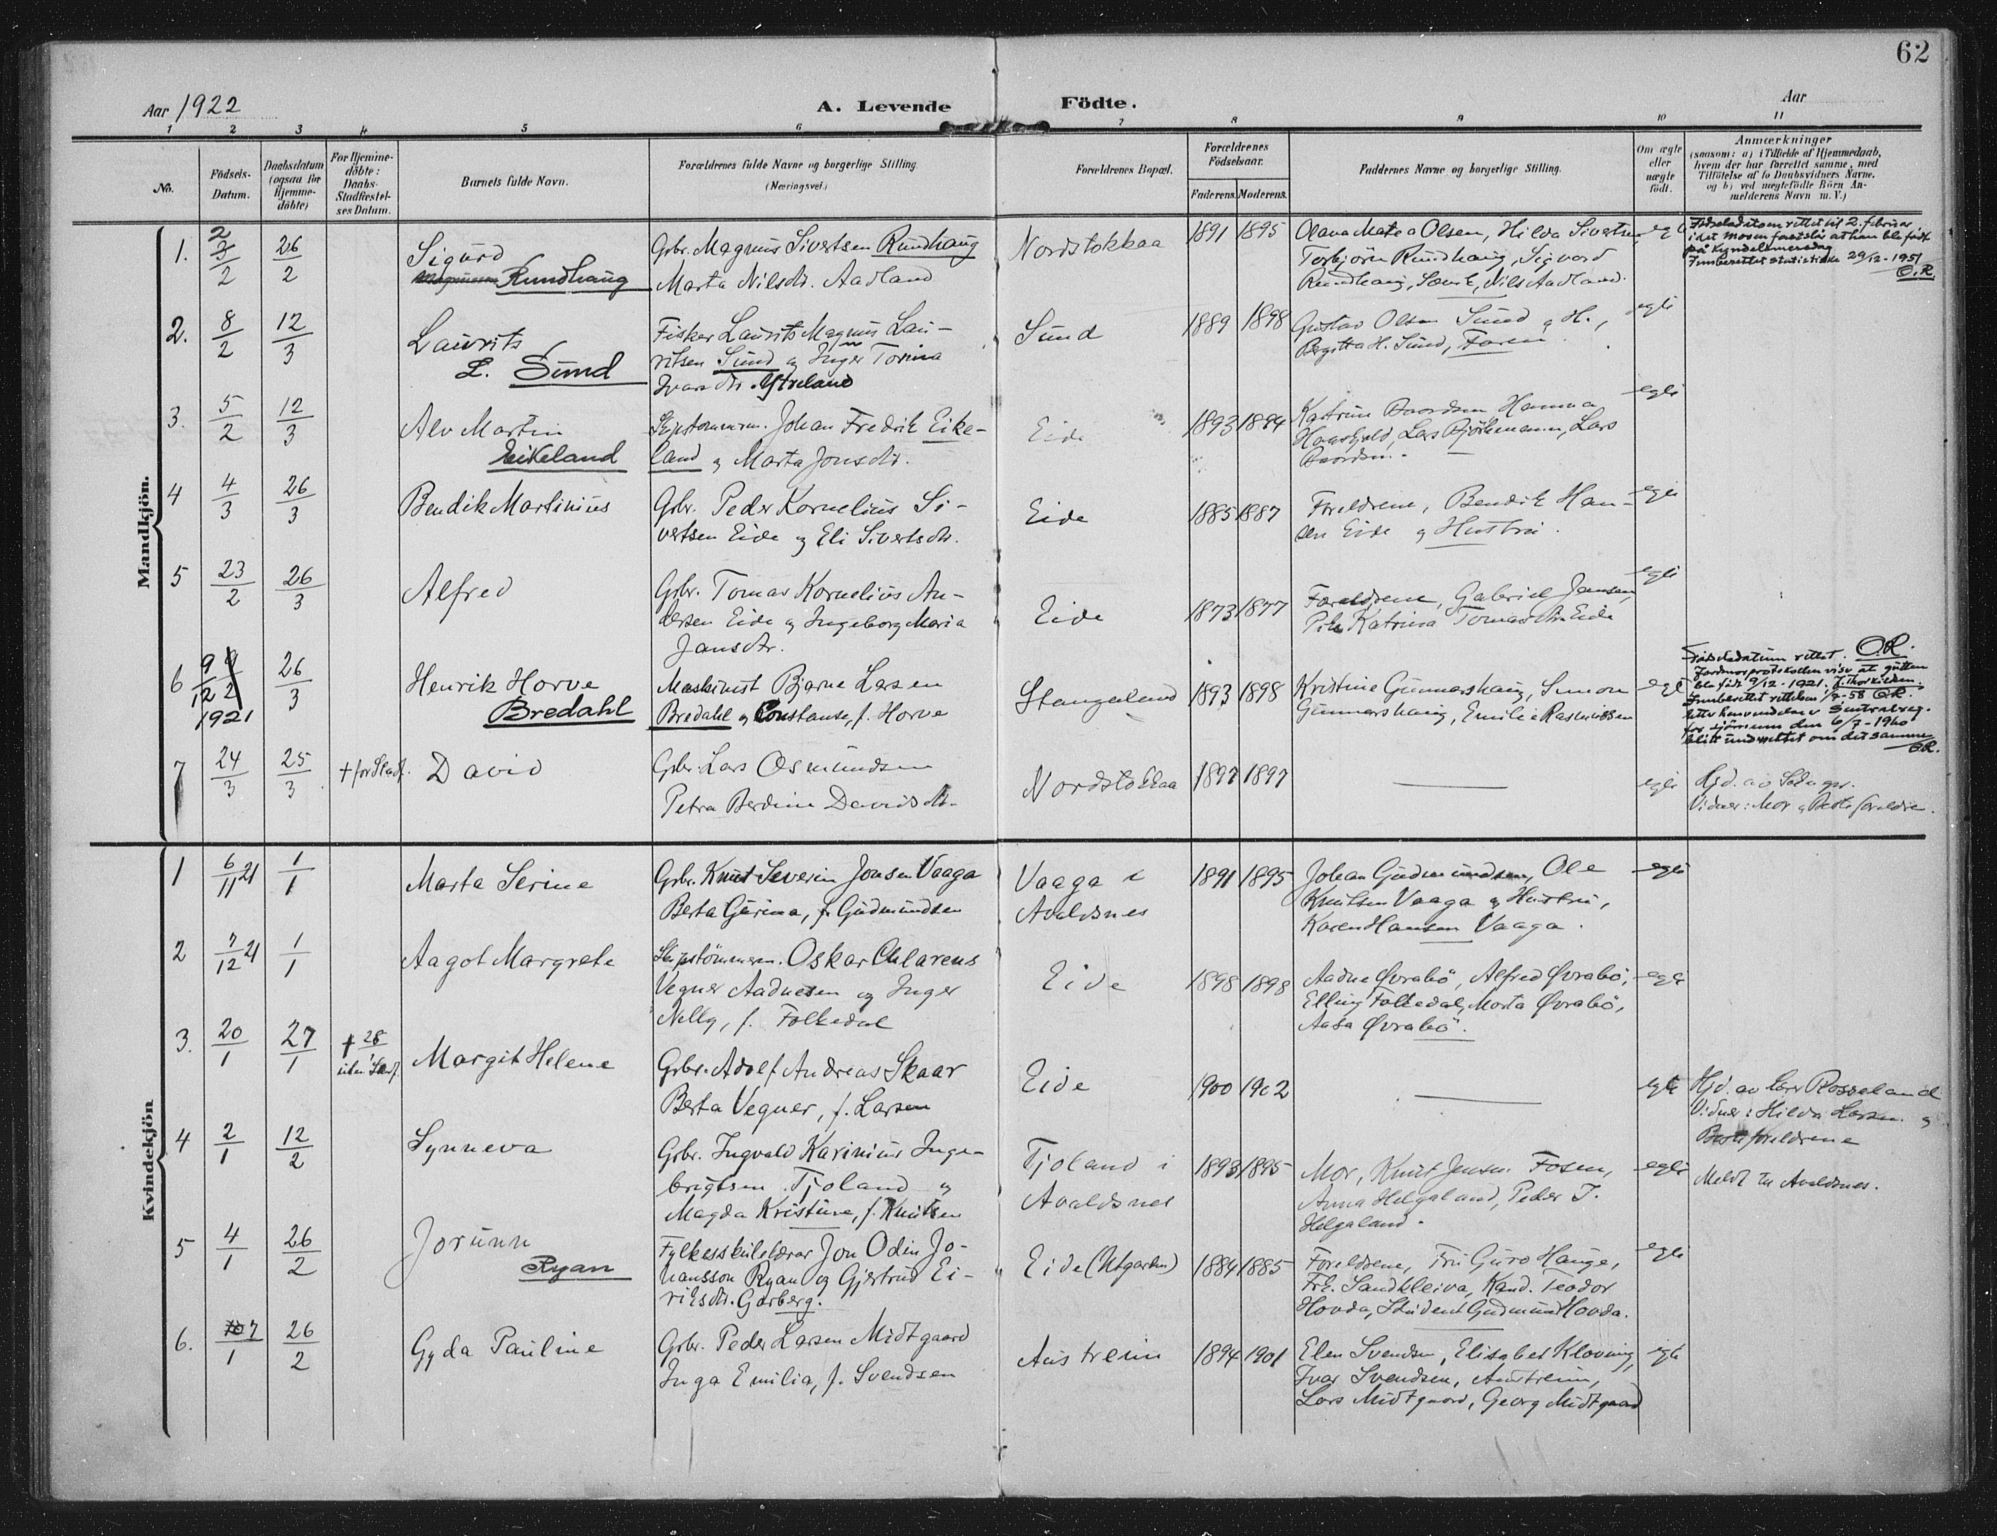 62
Aar 1922
A. Levende Födte.
Aar
1 2 3 4 5 6 7 8 9 10 11
No.
Födsels-
Datum.
Daabsdatum
(ogsaa for
Hjemme-
döbte)
For Hjemme-
döbte:
Daabs-
Stadfæstel-
ses Datum.
Barnets fulde Navn.
Forældrenes fulde Navne og borgerlige Stilling.
(Næringsvei.)
Forældrenes Bopæl.
Forældrenes
Födselsaar.
Faderens. Moderens.
Faddernes Navne og borgerlige Stilling.
Om ægte
eller
uægte
födt.
Anmærkninger
(saasom: a) i Tilfælde af Hjemmedaab,
hvem der har forrettet samme, med
Tilföielse af to Daabsvidners Navne,
og b) ved uægtefödte Börn An-
melderens Navn m. V.)
Mandkjön.
1. 2 3/2 26/2
Sigurd
Rundhaug
Gbr. Magnus Sivertsen Rundhaug
Marta Nilsdtr. Aadland
Nordstokkaa
1891 1895
Olava Matea Olsen, Hilda Sivertsen
Torbjörn Rundhaug, Sigvord
Rundhaug, Nils Aadland.
Födselsdatoen rettet til 2. februar,
idet moren fastslår at han ble födt
på Kyndelsmesdag
Innberettet statistikk 29/12-1951
O.R.
2. 8/2 12/3
Laurits
L. Sund
Fisker Laurits Magnus Lau-
ritsen Sund og Inger Torina
Ivarsdtr. Ystreland
Sund
1889 1898
Gustav Olsen Sund og H.,
Bergitta H. Sund, Faren.
egte
3. 5/2 12/3
Alv Martin
Eikeland
Skipstömmerm. Johan Fredrik Eike-
land og Marta Jonsdtr.
Eide
1893 1894
Katrine Baardsen Hanna
Lars Björkemann, Lars
Baardsen.
egte
4 4/3 26/3
Bendik Martinius
Gbr. Peder Kornelius Si-
vertsen Eide og Eli Sivertsdtr.
Eide
1885 1887
Foreldrene, Bendik Han-
sen Eide og Hustru.
egte
5 23/2 26/3
Alfred
Gbr. Tomas Kornelius An-
dersen Eide og Ingeborg Maria
Jansdtr.
Eide
1873 1877
Foreldrene, Gabriel Jansen,
Pike Katrina Tomasdtr. Eide
egte
6 9/12 1921 26/3
Henrik Horve
Bredahl
Maskinist Bjarne Larsen
Bredahl og Constanse, f. Horve
Stangeland
1893 1898
Kristine Gunnarshaug, Simon
Gunnarshaug, Emilie Rasmussen
egte
Födselsdatum rettet. O.R.
Jordmorprotokollen viser at gutten
ble född 9/12-1921. J. Thorkildsen.
Innberettet rettelsen /9-58 O.R.
Etter henvendelse Sentralreg.
for sjömenn den 6/7-1960
blitt underrettet om det samme
O.R.
7 24/3 25/3 + for Stadf.
David
Gbr. Lars Osmundsen
Petra Berdine Davidsdtr.
Nordstokkaa
1897 1897
egte
Hjd. av
Vidner: Mor og Besteforeldre.
Kvindekjön
1 6/11 21 1/1
Marta Serine
Gbr. Knut Severin Jonsen Vaaga
Berta Gurina, f. Gudmundsen
Vaaga i
Avaldsnes
1891 1895
Johan Gudmundsen, Ole
Knutsen Vaaga og Hustru,
Karen Hansen Vaaga.
egte
2 7/12 21 1/1
Aagot Margrete
Skipstömmerm. Oskar Clarens
Vegner Aadnesen og Inger
Nelly, f. Folkedal
Eide
1898 1898
Aadne Øvrabö, Alfred Øvrabö,
Elling Folkedal, Marta Øvrabö,
Aasa Øvrabö.
egte
3. 20/1 27/1 + 28/1
uten Stadf.
Margit Helene
Gbr. Adolf Andreas Skaar
Berta Vegner, f. Larsen
Eide
1900 1902
egte
Hjd. av Rosseland
Vidner: Hilda Larsen og
Besteforeldrene
4 2/1 12/2
Synneva
Gbr. Ingvald Karinius Inge-
brigtsen Tjoland og
Magda Kristine, f. Knutsen
Tjoland i
Avaldsnes
1893 1895
Mor, Knut Jensen Fosen,
Anna Helgaland, Peder I.
Helgaland.
egte
Meldt til Avaldsnes.
5 4/1 26/2
Jorunn
Ryan
Fylkesskulelærar Jon Odin Jo-
hansson Ryan og Gjertrud Ei-
riksdtr. Garberg.
Eide (Utgarden)
1884 1885
Foreldrene, Fru Guro Hauge,
Frk. Sandkleiva, Kand. Teodor
Hovda, Student Gudmund Hovda.
egte
6. 7/1 26/2
Gyda Pauline
Gbr. Peder Larsen Midtgaard
Inga Emilia, f. Svendsen
Austreim
1894 1901
Elen Svendsen, Elisabet Klovning
Ivar Svendsen, Austreim,
Lars Midtgaard, Georg Midtgaard
egte